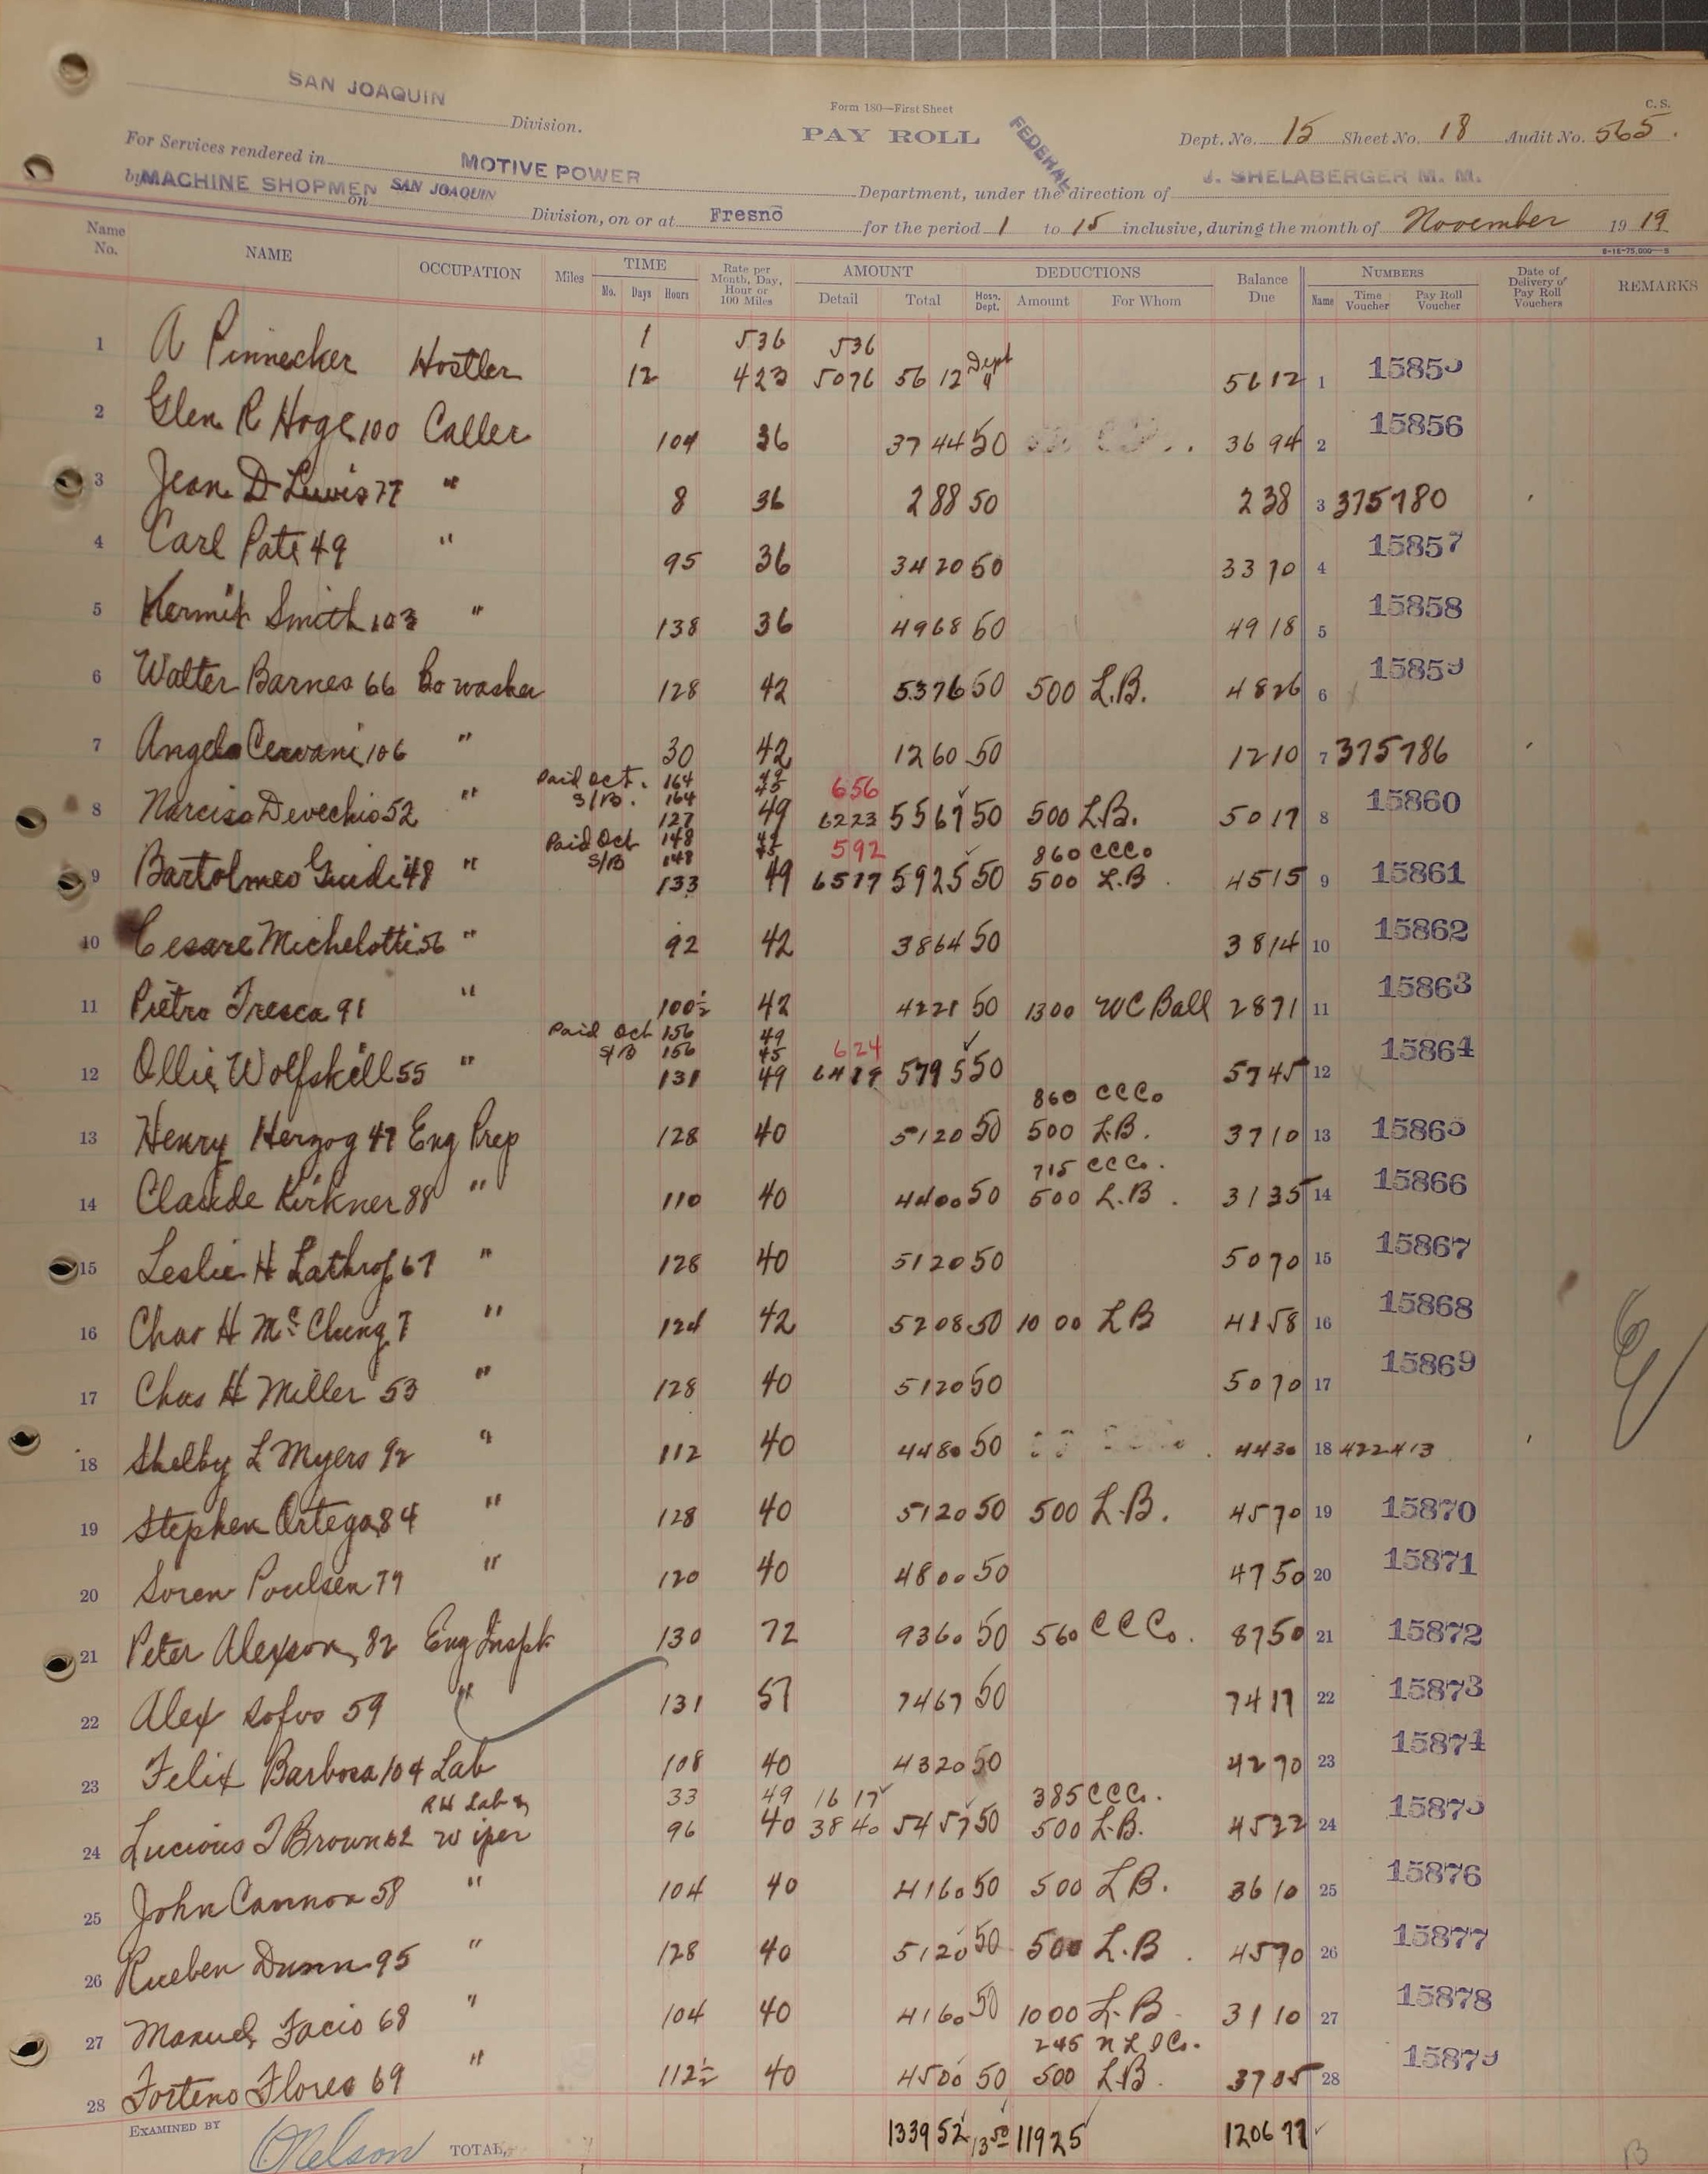 C. S.
SAN JOAQUIN Division.
Form 180—First Sheet
PAY ROLL
FEDERAL
Dept. No. 15 Sheet No. 18 Audit No. 565.
For Services rendered in MOTIVE POWER Department, under the direction of J. SHELABERGER M. M.
by MACHINE SHOPMEN on SAN JOAQUIN Division, on or at Fresno for the period 1 to 15 inclusive, during the month of November 1919
8-16-75,000—S
Name No. NAME OCCUPATION Miles TIME Mo. Days Hours Rate per Month, Day, Hour or 100 Miles AMOUNT Detail Total Hosp. Dept. DEDUCTIONS Amount For Whom Balance Due NUMBERS Name Time Voucher Pay Roll Voucher Date of Delivery of Pay Roll Vouchers REMARKS
1 536 536
1 A Pinnecker Hostler 12 423 5076 56 12 Dept " 5612 1 15855
2 Glen R Hoge 100 Caller 104 36 3744 50 3694 2 15856
3 Jean D Lewis 77 " 8 36 288 50 238 3 375780
4 Carl Pate 49 " 95 36 3420 50 3370 4 15857
5 Kermit Smith 103 " 138 36 4968 50 4918 5 15858
6 Walter Barnes 66 Bo washer 128 42 5376 50 500 L.B. 4826 6 15859
7 Angelo Cervani 106 " 30 42 1260 50 1210 7 375786
Paid Oct. 164 49 656
S/B. 164 45
8 Narciso Devechio 52 " 127 49 6223 5567 50 500 L.B. 5017 8 15860
Paid Oct 148 49 592 860 CCCo
S/B 148 45
9 Bartolmeo Guidi 48 " 133 49 6517 5925 50 500 L.B 4515 9 15861
10 Cesare Michelotti 56 " 92 42 3864 50 3814 10 15862
11 Pietro Tresca 91 " 100½ 42 4221 50 1300 WC Ball 2871 11 15863
Paid Oct 156 49 624
S/B 156 45
12 Ollie Wolfskill 55 " 131 49 6419 5795 50 5745 12 15864
860 CCCo
13 Henry Herzog 47 Eng Prep 128 40 5120 50 500 L.B. 3710 13 15865
715 CCCo.
14 Claude Kirkner 88 " 110 40 4400 50 500 L.B. 3135 14 15866
15 Leslie H Lathrop 67 " 128 40 5120 50 5070 15 15867
16 Chas H McClung 7 " 124 42 5208 50 10 00 LB 4158 16 15868
17 Chas H Miller 53 " 128 40 5120 50 5070 17 15869
18 Shelby L Myers 92 " 112 40 4480 50 4430 18 422413
19 Stephen Ortega 84 " 128 40 5120 50 500 L.B. 4570 19 15870
20 Soren Poulsen 79 " 120 40 4800 50 4750 20 15871
21 Peter Alexson 82 Eng Inspt 130 72 9360 50 560 CCCo. 8750 21 15872
22 Alex Sofvo 59 " 131 57 7467 50 7417 22 15873
23 Felix Barbosa 104 Lab 108 40 4320 50 4270 23 15874
RH Lab & 33 49 16 17 385 CCCo.
24 Lucious J Brown 62 Wiper 96 40 38 40 5457 50 500 L.B. 4522 24 15875
25 John Cannon 58 " 104 40 4160 50 500 L B. 3610 25 15876
26 Rueben Dunn 95 " 128 40 5120 50 500 L.B. 4570 26 15877
27 Manuel Facio 68 " 104 40 4160 50 1000 L.B 3110 27 15878
245 N L I Co.
28 Forteno Flores 69 " 112½ 40 4500 50 500 L.B. 3705 28 15879
EXAMINED BY Nelson TOTAL, 133952 1350 11925 120677
B